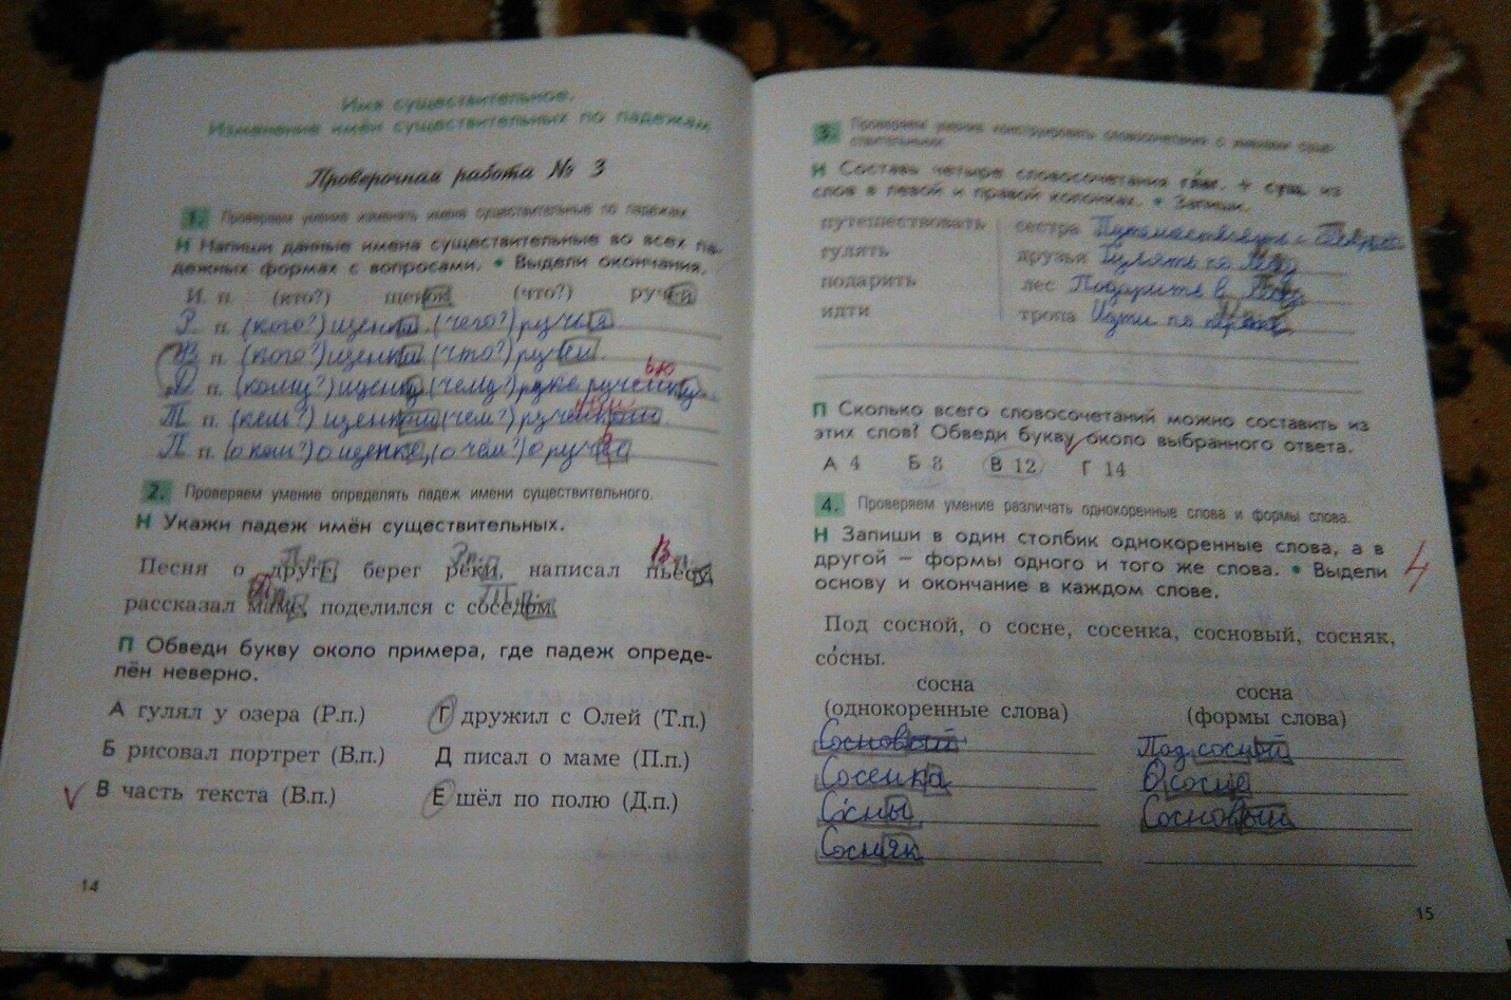 Имя существительное.
Изменение имён существительных по падежам
Проверочная работа № 3
1. Проверяем умение изменять имена существительные по падежам.
Н Напиши данные имена существительные во всех па-
дежных формах с вопросами. • Выдели окончания.
И. п. (кто?) щенок (что?) ручей
Р. п. (кого?) щенка, (чего?) ручья
В п. (кого?) щенка, (что?) ручей.
Д п. (кому?) щенку, (чему?)
ью
Т п. (кем?) щенком (чем?)
П п. (о ком?) о щенке, (о чём?) о ручье
2. Проверяем умение определять падеж имени существительного.
Н Укажи падеж имён существительных.
П.п. Р.п. В.п.
Песня о друге, берег реки, написал пьесу,
Т.п.
рассказал маме, поделился с соседом.
П Обведи букву около примера, где падеж опреде-
лён неверно.
А гулял у озера (Р.п.) Г дружил с Олей (Т.п.)
Б рисовал портрет (В.п.) Д писал о маме (П.п.)
В часть текста (В.п.) Е шёл по полю (Д.п.)
14
3. Проверяем умение конструировать словосочетания с именами суще-
ствительными.
Н Составь четыре словосочетания глаг. + сущ. из
слов в левой и правой колонках. • Запиши.
путешествовать сестра с
гулять друзья Гулять по лесу
подарить лес Подарить в
идти тропа Идти по
П Сколько всего словосочетаний можно составить из
этих слов? Обведи букву около выбранного ответа.
А 4 Б 8 В 12 Г 14
4. Проверяем умение различать однокоренные слова и формы слова.
Н Запиши в один столбик однокоренные слова, а в
другой — формы одного и того же слова. • Выдели
основу и окончание в каждом слове.
4
Под сосной, о сосне, сосенка, сосновый, сосняк,
со́сны.
сосна сосна
(однокоренные слова) (формы слова)
Сосновый Под сосной
Сосенка О сосне
Сосны Сосновый
Сосняк
15